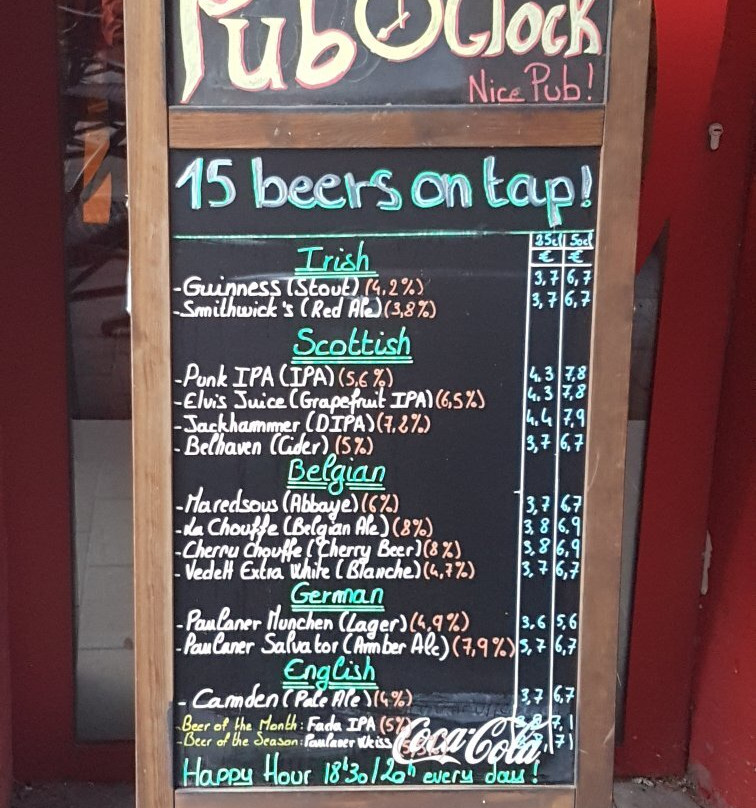 Pub O'Clock
Nice Pub!
15 beers on tap!
25cl 50cl
€ €
Irish
- Guinness (Stout) (4,2%) 3,7 6,7
- Smithwick's (Red Ale) (3,8%) 3,7 6,7
Scottish
- Punk IPA (IPA) (5,6%) 4,3 7,8
- Elvis Juice (Grapefruit IPA) (6,5%) 4,3 7,8
- Jackhammmer (DIPA) (7,2%) 4,4 7,9
- Belhaven (Cider) (5%) 3,7 6,7
Belgian
- Maredsous (Abbaye) (6%) 3,7 6,7
- La Chouffe (Belgian Ale) (8%) 3,8 6,9
- Cherry Chouffe (Cherry Beer) (8%) 3,8 6,9
- Vedett Extra White (Blanche) (4,7%) 3,7 6,7
German
- Paulaner Munchen (Lager) (4,9%) 3,6 5,6
- Paulaner Salvator (Amber Ale) (7,9%) 5,7 6,7
English
- Camden (Pale Ale) (4%) 3,7 6,7
- Beer of the Month: Fada IPA (5%) 7,1
- Beer of the Season: Paulaner Weiss
Coca-Cola
Happy Hour 18h30/20h every day!